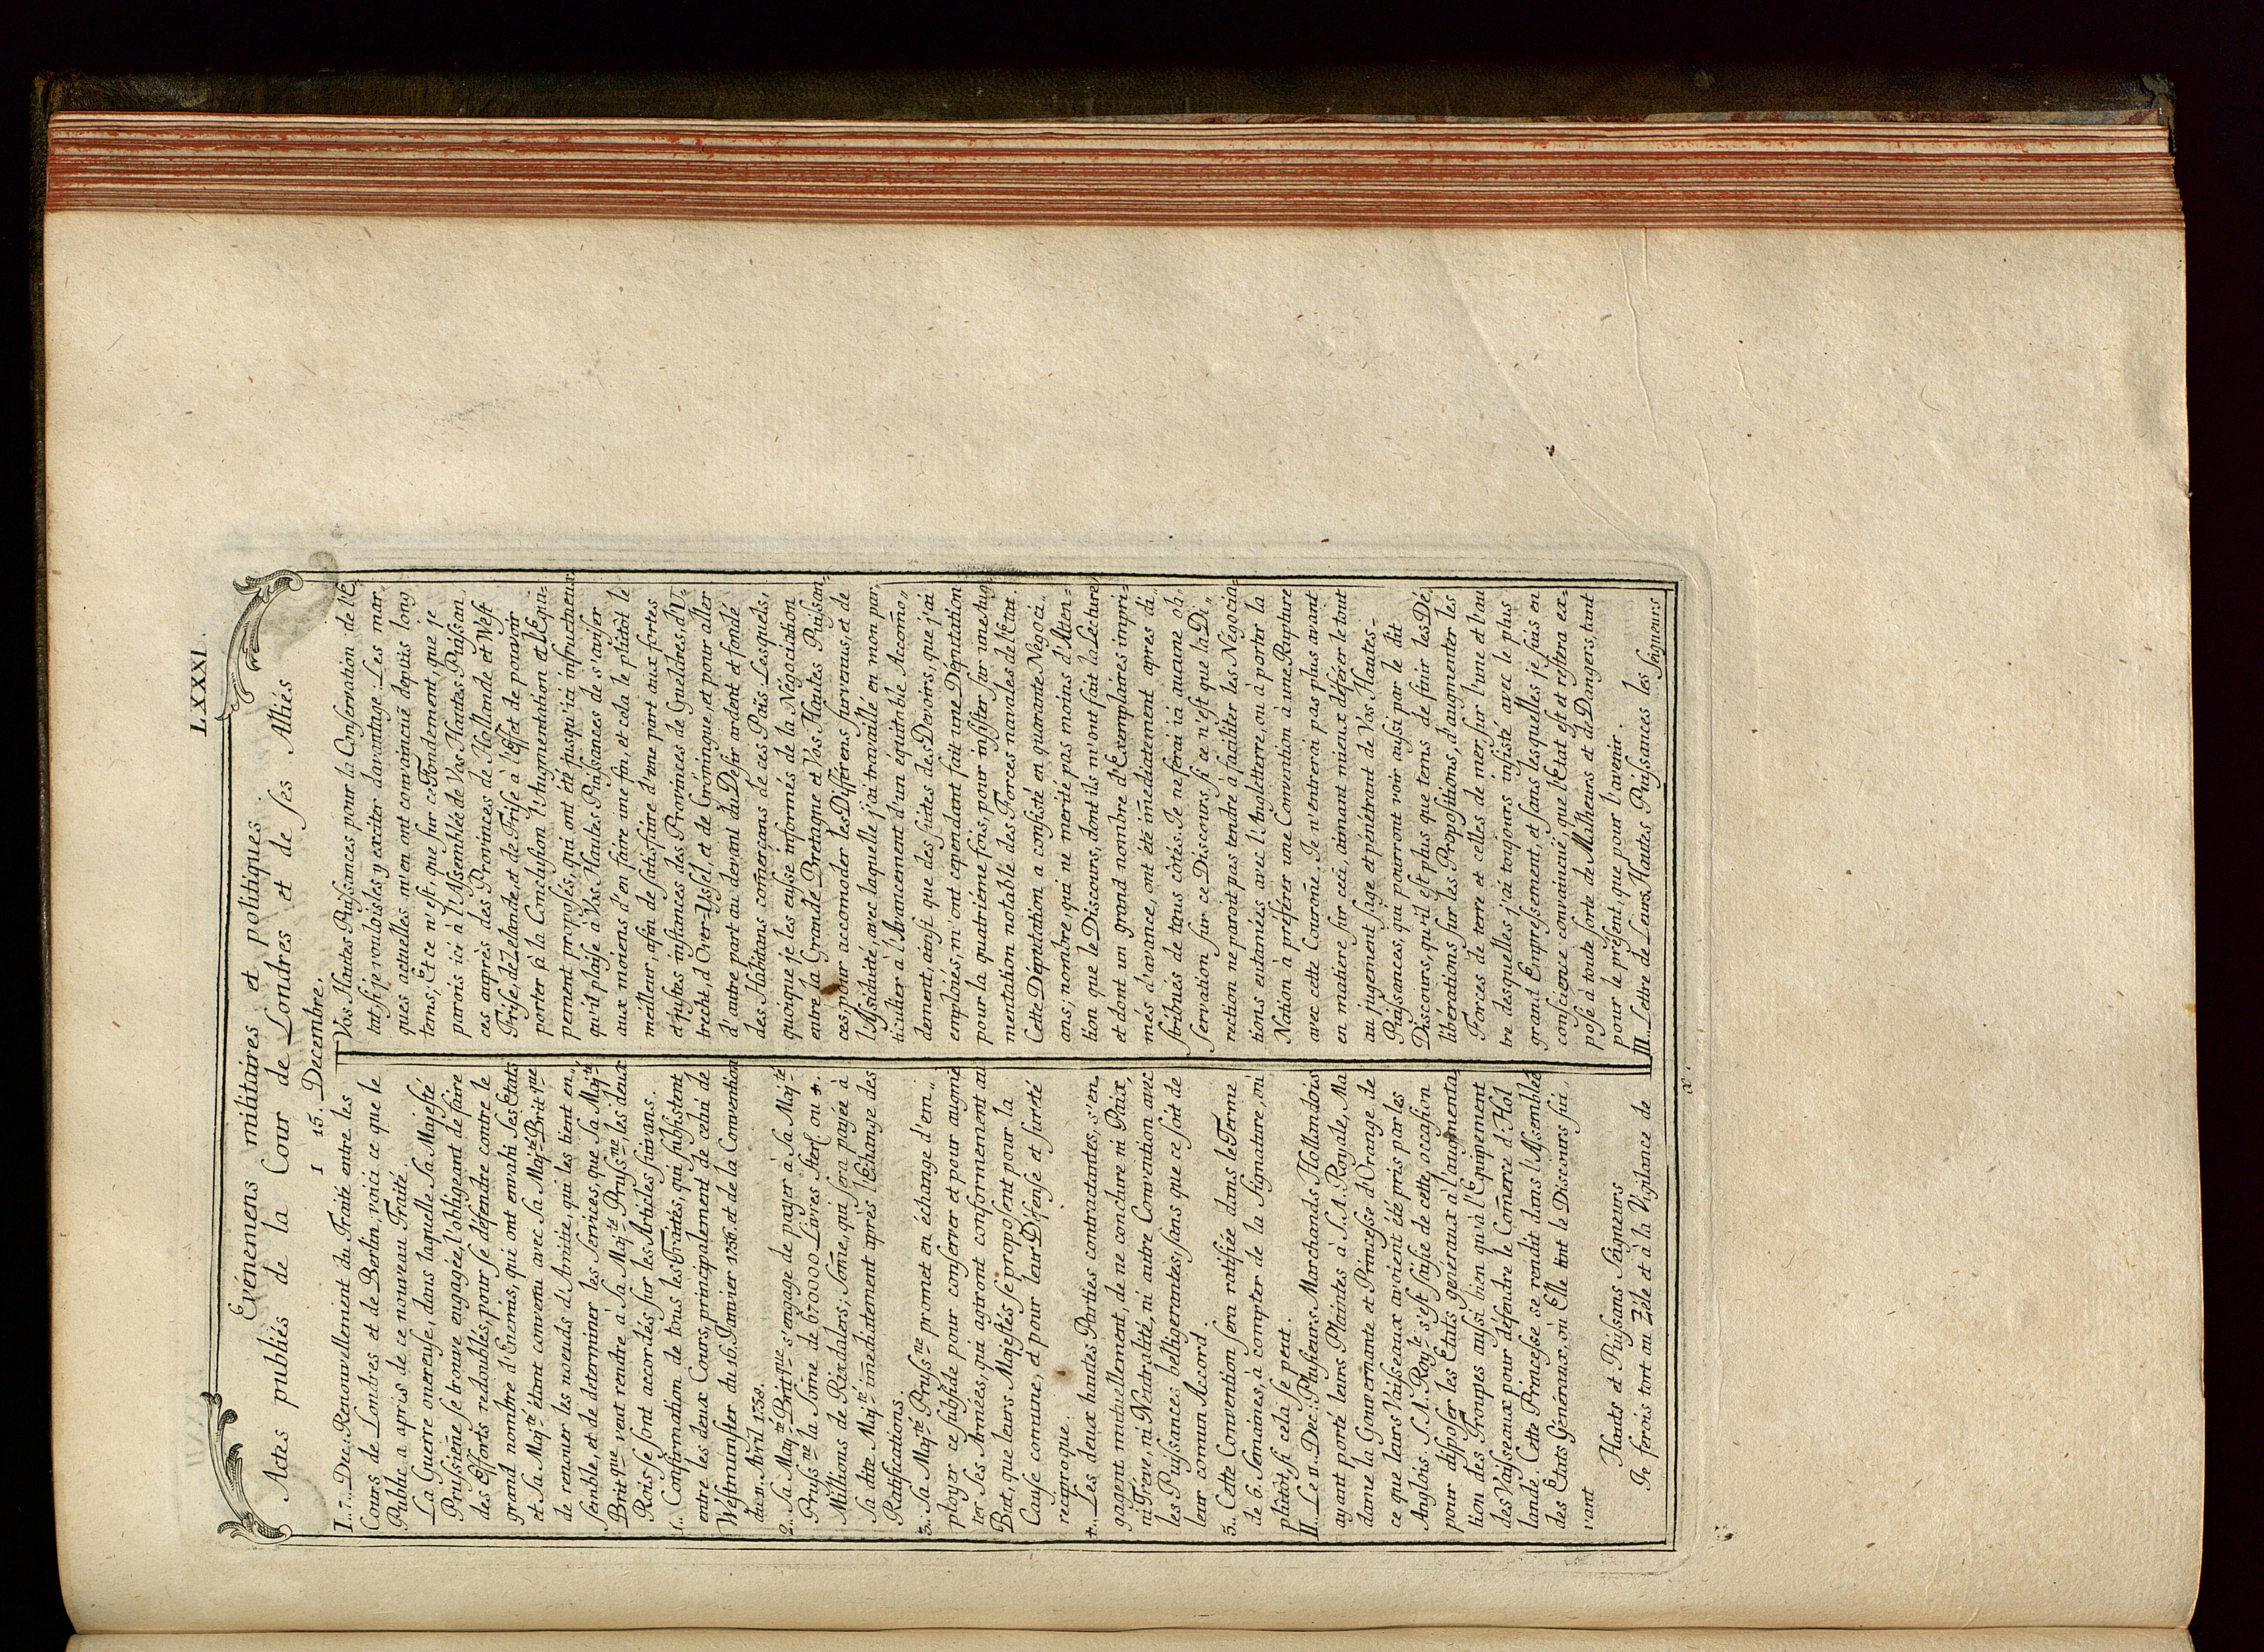 LXXXI.
Evénemens militaires et politiques.
Actes publiés de la Cour de Londres et de ses Alliés
1 15. Decembre.
I..7..Dec: Renouvellement du Traité entre les
Cours de Londres et de Berlin, voici ce que le
Public a apris de ce nouveau Traité.
La Guerre onereuse, dans laquelle Sa Majesté
Prussiene se trouve engagée, l'obligeant de faire
des Efforts redoublés, pour se défendre contre le
grand nombre d'Enemis, qui ont envahi ses Etats
et Sa Maj.té étant convenu avec Sa Maj.té Brit.que
de renouer les noeuds d'Amitié, qui les tient en„
semble, et de determiner les Services, que Sa Maj.té
Brit.que veut rendre à Sa Maj.té Pruss.ne, les deux
Rois se sont accordés sur les Articles suivans.
1.. Confirmation de tous les Traités, qui subsistent
entre les deux Cours, principalement de celui de
Westmunster du 16. Janvier 1756. et de la Convention
du 11. Avril 1758.
2.. Sa Maj.té Brit.que s'engage de payer à Sa Maj.té
Pruss.ne la Some de 670000 Livres Sterl ou 4.
Millions de Rixdalers; Some, qui sera payée à
Sa dite Maj.té imediatement après l'Echange des
Ratifications.
3.. Sa Maj.té Pruss.ne promet en échange d'em„
ployer ce subside pour conserver et pour augmē
ter Ses Armées, qui agiront conformement au
But, que leurs Majestés se proposent pour la
Cause comune, et pour leur Défense et sureté
reciproque.
4.. Les deux hautes Parties contractantes, s'en„
gagent mutuellement, de ne conclure ni Paix,
ni Treve, ni Neutralité, ni autre Convention avec
les Puissances belligerantes, sans que ce soit de
leur comun Accord.
5.. Cette Convention sera ratifiée dans le Terme
de 6. Semaines, à compter de la Signature, ou
plûtôt, si cela se peut.
II.. Le 11.. Dec: Plusieurs Marchands Hollandois
ayant porté leurs Plaintes à S.A. Royale, Ma
dame la Gouvernante et Princesse d'Orange de
ce que leurs Vaisseaux avoient été pris par les
Anglois. S.A. Roy.le s'est saisie de cette occasion
pour disposer les Etats generaux à l'augmenta
tion des Troupes aussi bien qu'à l'Equipement
des Vaisseaux pour défendre le Comerce d'Hol
lande. Cette Princesse se rendit dans l'Assemblée
des Etats Généraux, où Elle tint le Discours sui„
vant
Hauts et Puissans Seigneurs
Je ferois tort au Zéle et à la Vigilance de
Vos Hautes Puissances pour la Conservation de l'E„
tat, si je voulois les y exciter davantage. Les mar„
ques actuelles m'en ont convaincuë depuis long
tems; Et ce n'est, que sur ce Fondement, que je
parois ici à l'Assemblée de Vos Hautes Puissan
ces auprès des Provinces de Hollande et West
Frise, de Zelande, et de Frise à l'Effet de pouvoir
porter à la Conclusion l'Augmentation et l'Equi„
pement proposés, qui ont été jusqu'ici infructueux
qu'il plaise à Vos Hautes Puissances de s'aviser
aux moiens d'en faire une fin, et cela le plûtôt le
meilleur, afin de satisfaire d'une part aux fortes
et justes instances des Provinces de Gueldres, d'U„
trecht, d'Over-Yssel, et de Gröningue, et pour aller
d'autre part au devant du Desir ardent et fondé
des Habitans comerçans de ces Païs. Lesquels,
quoique je les eusse informés de la Négociation
entre la Grande Bretagne et Vos Hautes Puissan„
ces, pour accomoder les Différens survenus, et de
l'Assiduité, avec laquelle j'ai travaillé en mon par„
ticulier à l'Avancement d'un équitable Accomo„
dement, ainsi que des suites des Devoirs, que j'ai
emploiés, m'ont cependant fait une Députation
pour la quatriéme fois, pour insister sur une Aug„
mentation notable des Forces navales de l'Etat.
Cette Députation a consisté en quarante Négoci„
ans; nombre, qui ne merite pas moins d'Atten=
tion que le Discours, dont ils m'ont fait la Lecture,
et dont un grand nombre d'Exemplaires impri=
més d'avance, ont été imediatement apres di„
stribués de tous côtés. Je ne ferai ici aucune ob„
servation sur ce Discours, si ce n'est que la Di„
rection ne paroit pas tendre à faciliter les Négocia=
tions entamées avec l'Angleterre, ou à porter la
Nation à préférer une Convention à une Rupture
avec cette Courone. Je n'entrerai pas plus avant
en matiere sur ceci, aimant mieux déférer le tout
au jugement sage et pénétrant de Vos Hautes=
Puissances, qui pourront voir aussi par le dit
Discours, qu'il est plus que tems de finir les Dé„
libérations sur les Propositions, d'augmenter les
Forces de terre et celles de mer, sur l'une et l'au
tre desquelles j'ai toujours insisté avec le plus
grand Empressement, et sans lesquelles je suis en
conscience convaincuë, que l'Etat est et restera ex=
posé à toute sorte de Malheurs et de Dangers, tant
pour le présent, que pour l'avenir.
III.. Lettre de Leurs Hautes Puissances les
Seigneurs
x.